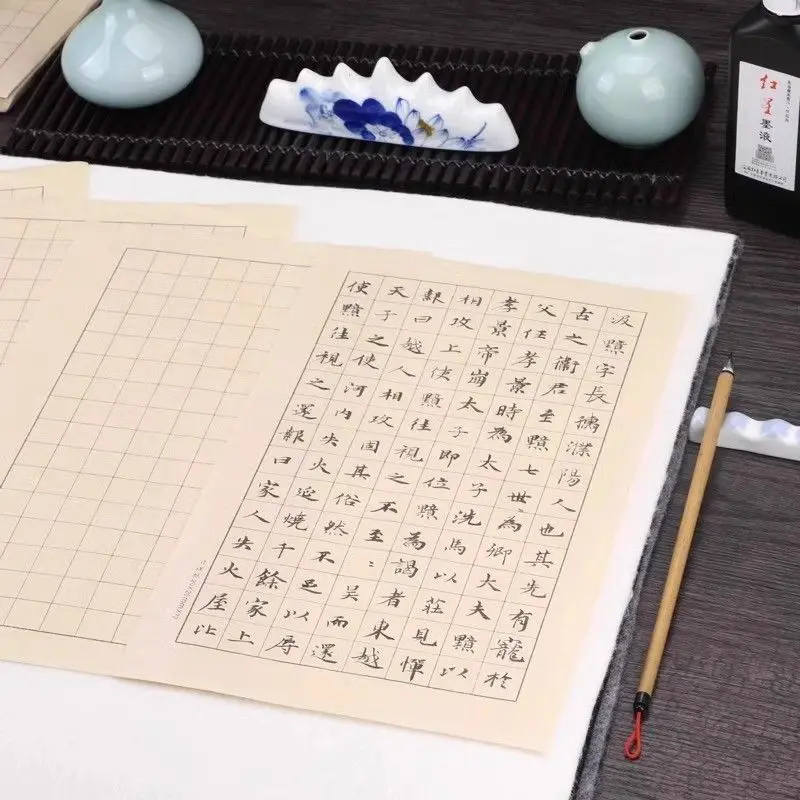 汲黯字長孺濮陽人也其先有寵於
古之衛君至黯七世〻為卿大夫黯以
父任孝景時為太子洗馬以莊見憚
孝景帝崩太子即位黯為謁者東越
相攻上使黯往視之不至〻吴而還
報曰越人相攻固其俗然不足以辱
天子之使河内失火延燒千餘家上
使黯往視之還報曰家人失火屋比
红星墨液